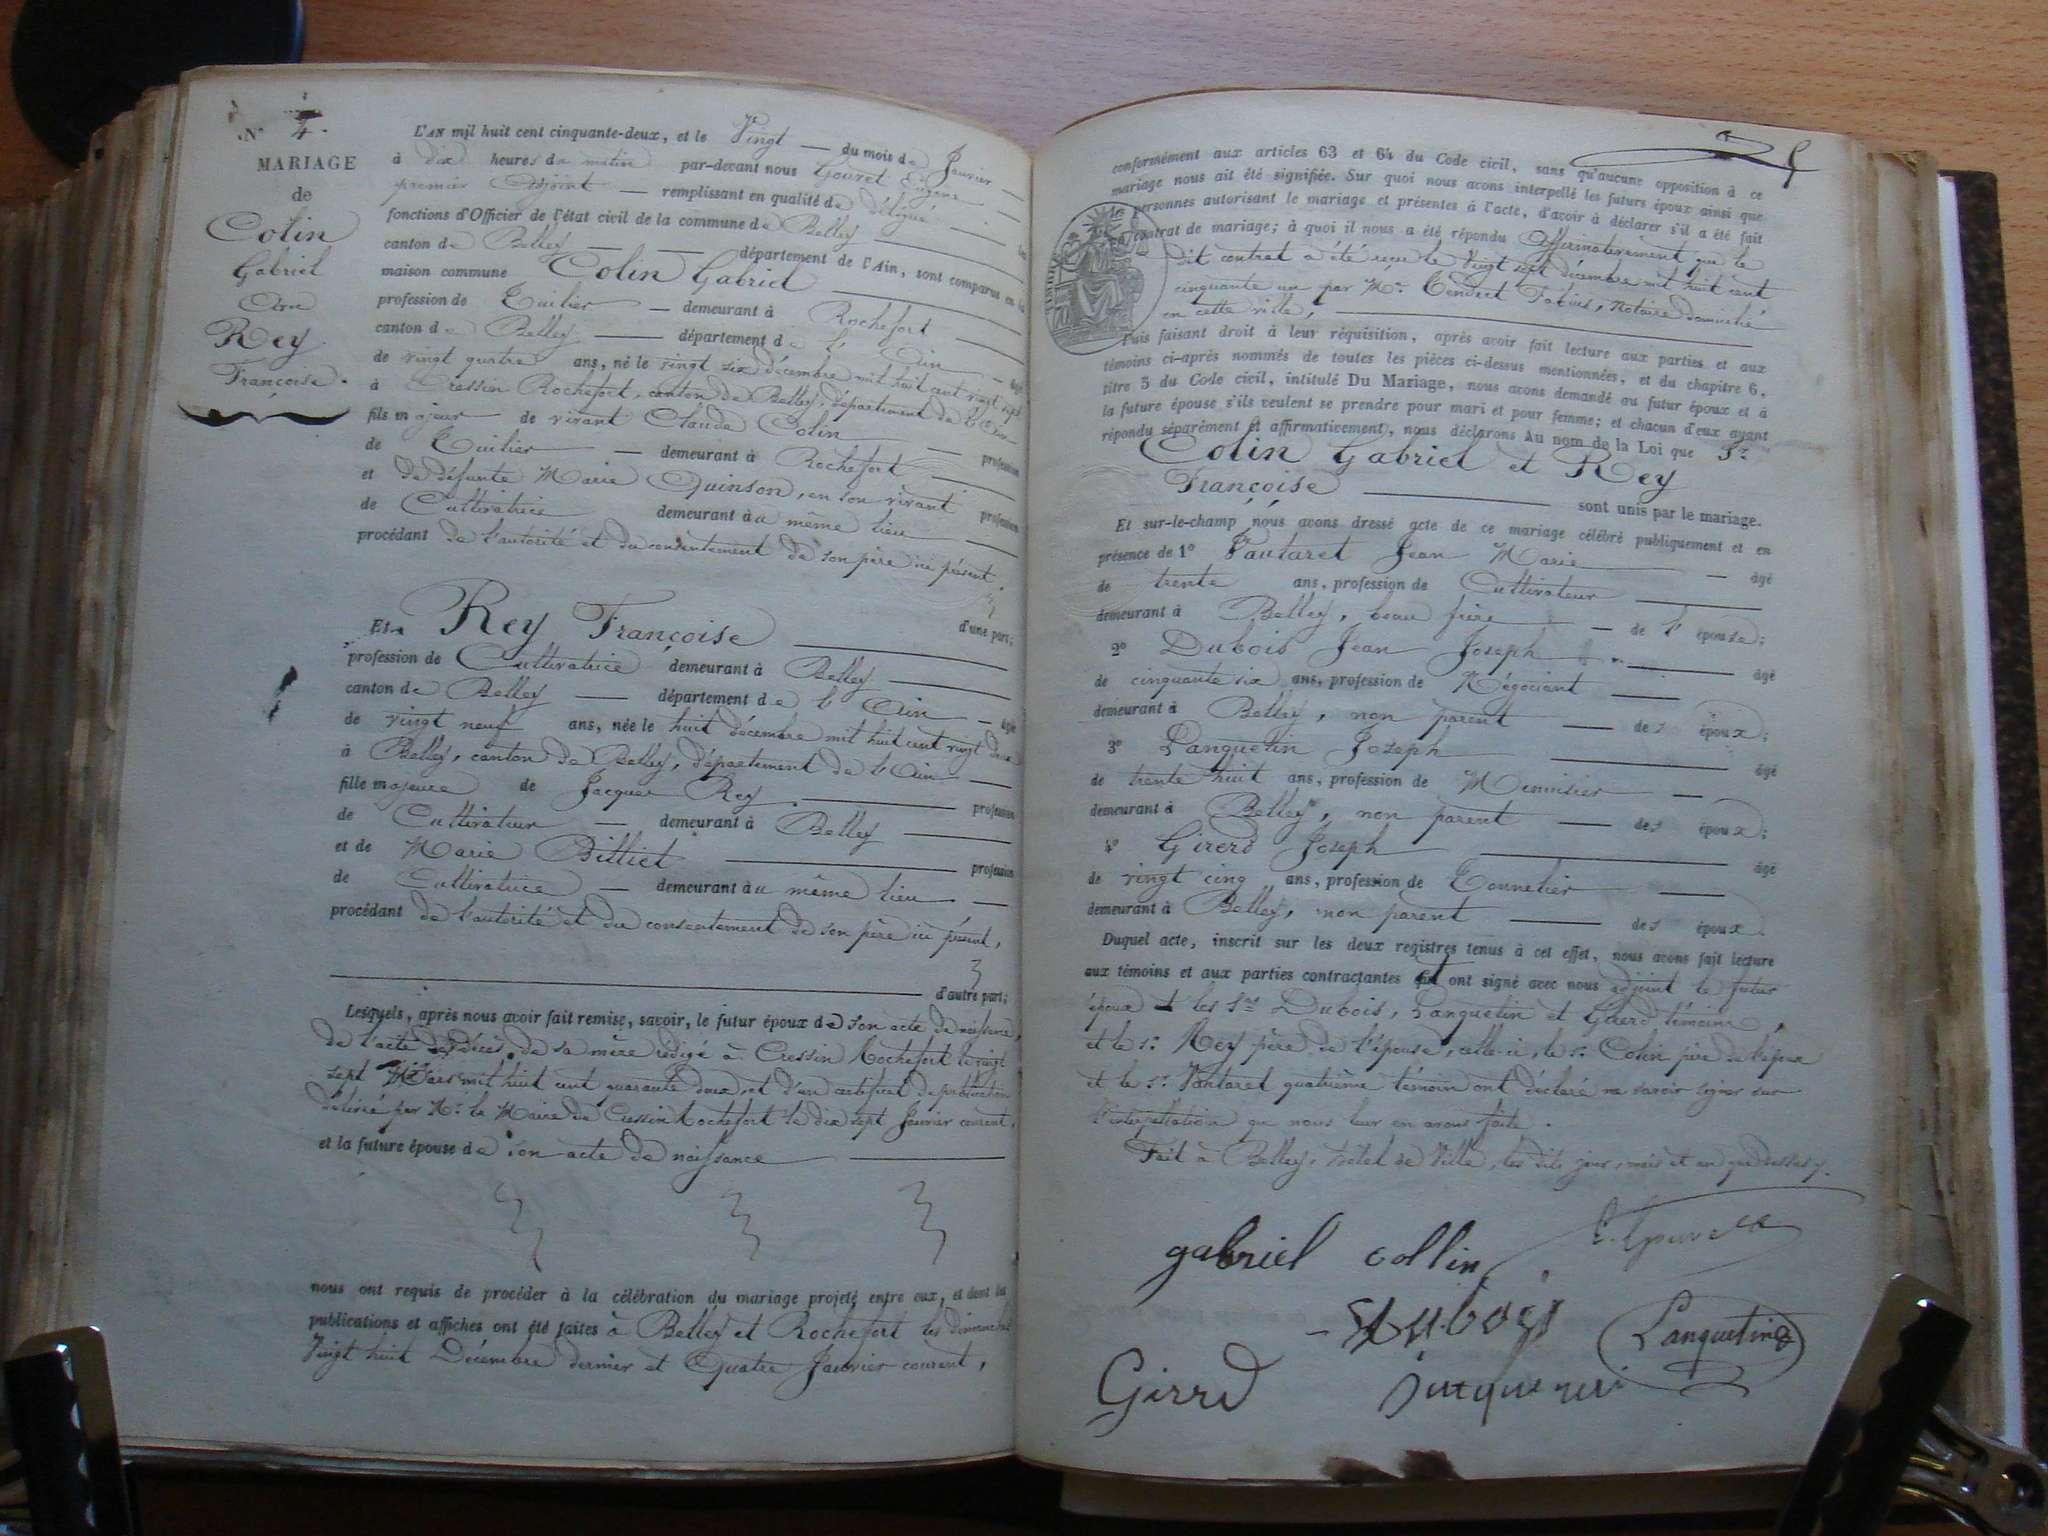 N° 4.
MARIAGE
de
Colin
Gabriel
Avec
Rey
Françoise.
L'AN mil huit cent cinquante-deux, et le Vingt du mois de Janvier
à dix heures du matin par-devant nous Gouvet Eugène
premier Adjoint remplissant en qualité de délégué les
fonctions d'Officier de l'état civil de la commune de Belley
canton de Belley département de l'Ain, sont comparus en la
maison commune Colin Gabriel
profession de Tuilier demeurant à Rochefort
canton de Belley département de l'Ain âgé
de vingt quatre ans, né le vingt six décembre mil huit cent vingt sept
à Cressin Rochefort, canton de Belley, département de l'Ain
fils majeur de vivant Claude Colin profession
de Tuilier demeurant à Rochefort
et de défunte Marie Quinson, en son vivant profession
de Cultivatrice demeurant au même lieu
procédant de l'autorité et du consentement de son père ici présent
d'une part;
Et Rey Françoise
profession de Cultivatrice demeurant à Belley
canton de Belley département de l'Ain âgée
de vingt neuf ans, née le huit décembre mil huit cent vingt deux
à Belley, canton de Belley, département de l'Ain
fille majeure de Jacques Rey profession
de Cultivateur demeurant à Belley
et de Marie Billiet profession
de Cultivatrice demeurant au même lieu
procédant de l'autorité et du consentement de son père ici présent,
d'autre part;
Lesquels, après nous avoir fait remise, savoir, le futur époux de son acte de naissance,
de l'acte de décès de sa mère rédigé à Cressin Rochefort le vingt
sept Mars mil huit cent quarante deux, et d'un certificat de publication
délivré par Mr. le Maire de Cressin Rochefort le dix sept Janvier courant,
et la future épouse de son acte de naissance
nous ont requis de procéder à la célébration du mariage projeté entre eux, et dont les
publications et affiches ont été faites à Belley et Rochefort les dimanches
Vingt huit Décembre dernier et Quatre Janvier courant,
conformément aux articles 63 et 64 du Code civil, sans qu'aucune opposition à ce
mariage nous ait été signifiée. Sur quoi nous avons interpellé les futurs époux ainsi que
les personnes autorisant le mariage et présentes à l'acte, d'avoir à déclarer s'il a été fait
contrat de mariage; à quoi il nous a été répondu Affirmativement, que le
dit contrat a été reçu le Vingt sept décembre mil huit cent
cinquante un par Me. Tendret Fabius, Notaire domicilié
en cette ville,
Puis faisant droit à leur réquisition, après avoir fait lecture aux parties et aux
témoins ci-après nommés de toutes les pièces ci-dessus mentionnées, et du chapitre 6,
titre 5 du Code civil, intitulé Du Mariage, nous avons demandé au futur époux et à
la future épouse s'ils veulent se prendre pour mari et pour femme; et chacun d'eux ayant
répondu séparément et affirmativement, nous déclarons Au nom de la Loi que Sr.
Colin Gabriel et Rey
Françoise sont unis par le mariage.
Et sur-le-champ nous avons dressé acte de ce mariage célébré publiquement et en
présence de 1° Vautaret Jean Marie âgé
de trente ans, profession de Cultivateur
demeurant à Belley, beau frère de l'épouse;
2° Dubois Jean Joseph âgé
de cinquante six ans, profession de Négociant
demeurant à Belley, non parent des époux;
3° Lanquetin Joseph âgé
de trente huit ans, profession de Menuisier
demeurant à Belley, non parent des époux;
4° Girerd Joseph âgé
de vingt cinq ans, profession de Tonnelier
demeurant à Belley, non parent des époux.
Duquel acte, inscrit sur les deux registres tenus à cet effet, nous avons fait lecture
aux témoins et aux parties contractantes et ont signé avec nous adjoint le futur
époux et les Srs Dubois, Lanquetin et Girerd témoins,
et le Sr. Rey père de l'épouse, celle-ci, le Sr. Colin père de l'époux
et le Sr. Vautaret quatrième témoin ont déclaré ne savoir signer sur
l'interpellation que nous leur en avons faite.
Fait à Belley, hôtel de Ville, les dits jour, mois et an que dessus.
gabriel collin
Dubois
Lanquetin
Girrd